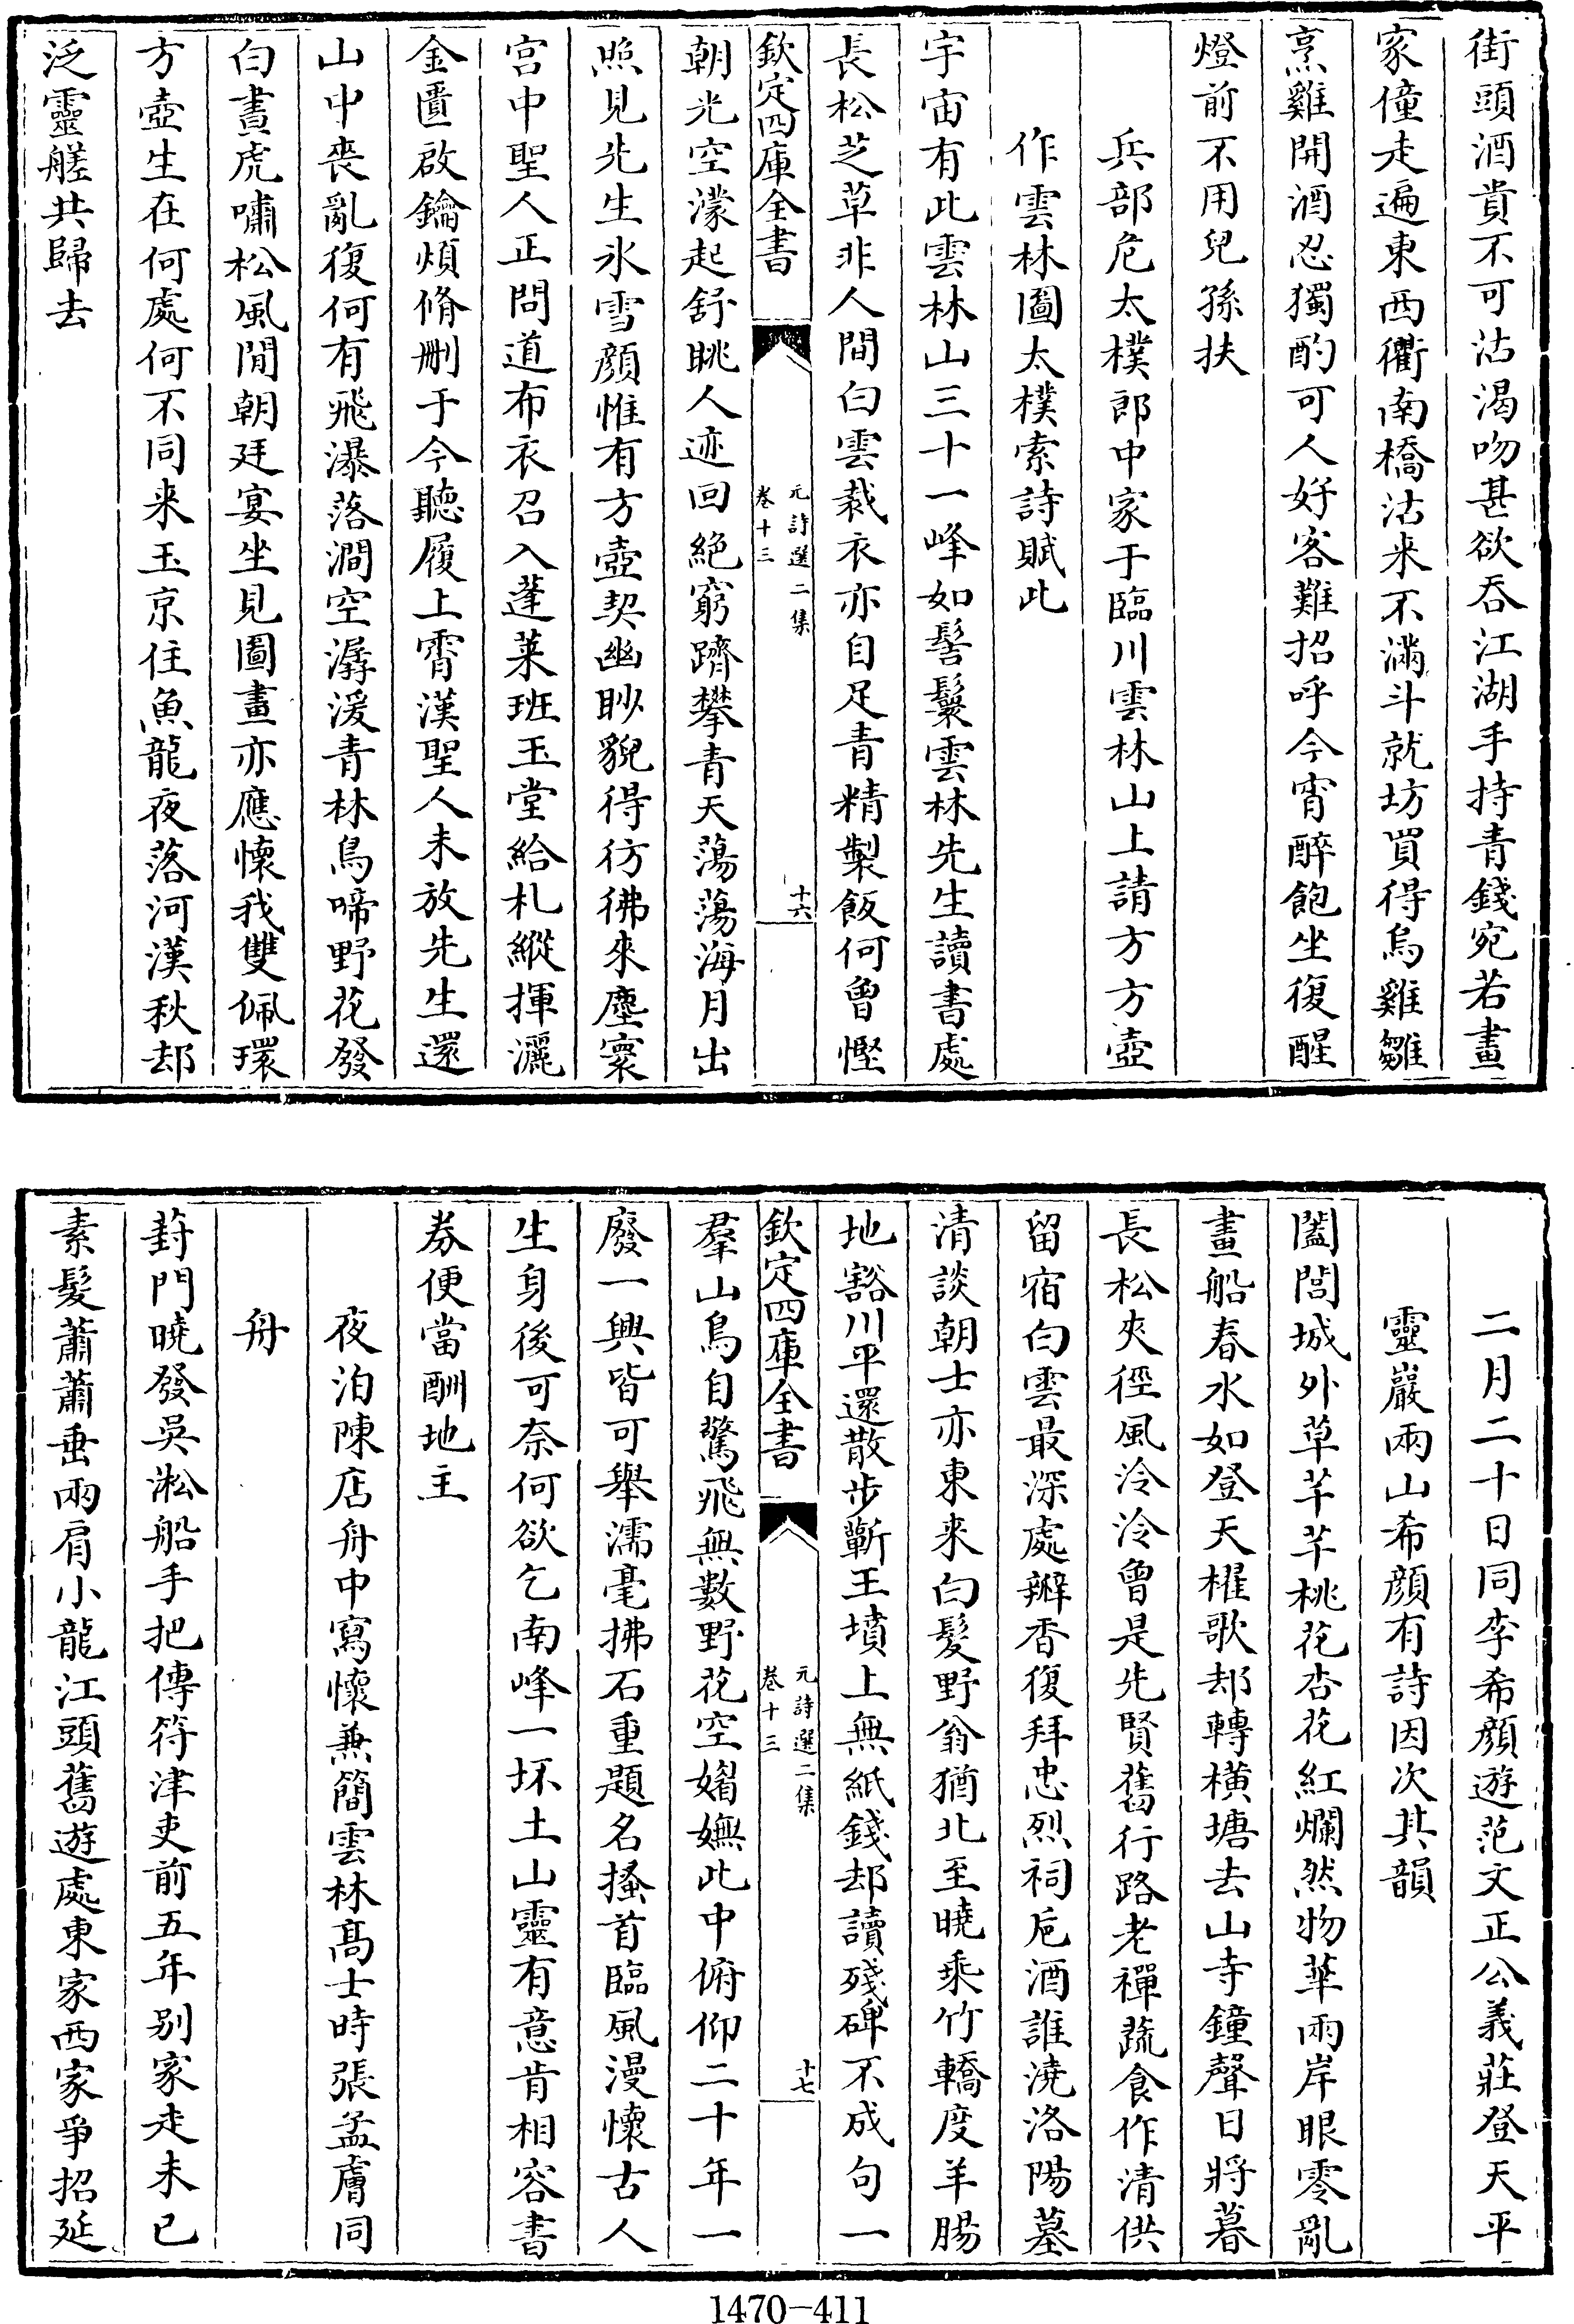 街頭酒貴不可沽渴吻甚欲吞江湖手持青錢宛若畫
家僮走遍東西衢南橋沽来不滿斗就坊買得烏雞雛
烹雞開酒忍獨酌可人好客難招呼今宵醉飽坐復醒
燈前不用兒孫扶
兵部危太樸郎中家于臨川雲林山上請方方壺
作雲林圖太樸索詩賦此
宇宙有此雲林山三十一峰如髻鬟雲林先生讀書處
長松芝草非人間白雲裁衣亦自足青精製飯何曾慳
欽定四庫全書
元詩選二集
卷十三
十六
朝光空濛起舒眺人迹回絶窮躋攀青天蕩蕩海月出
照見先生氷雪顔惟有方壺契幽眇貌得彷彿來塵寰
宫中聖人正問道布衣召入蓬萊班玉堂給札縱揮灑
金匱啟鑰煩脩刪于今聽履上霄漢聖人未放先生還
山中喪亂復何有飛瀑落澗空潺湲青林鳥啼野花發
白晝虎嘯松風閒朝廷宴坐見圖畫亦應懷我雙佩環
方壺生在何處何不同来玉京住魚龍夜落河漢秋却
泛靈槎共歸去
二月二十日同李希顔遊范文正公義莊登天平
靈巖兩山希顔有詩因次其韻
闔閭城外草芊芊桃花杏花紅爛然物華兩岸眼零亂
畫船春水如登天櫂歌却轉横塘去山寺鐘聲日將暮
長松夾徑風泠泠曾是先賢舊行路老禪蔬食作清供
留宿白雲最深處瓣香復拜忠烈祠巵酒誰澆洛陽墓
清談朝士亦東来白髮野翁猶北至曉乗竹轎度羊腸
地豁川平還散步蘄王墳上無紙錢却讀殘碑不成句一
欽定四庫全書
元詩選二集
卷十三
十七
羣山鳥自驚飛無數野花空媚嫵此中俯仰二十年一
廢一興皆可舉濡毫拂石重題名搔首臨風漫懷古人
生身後可奈何欲乞南峰一坏土山靈有意肯相容書
券便當酬地主
夜泊陳店舟中寫懷兼簡雲林髙士時張孟膚同
舟
葑門曉發吳淞船手把傳符津吏前五年别家走未已
素髮蕭蕭垂兩肩小龍江頭舊遊處東家西家爭招延
1470-411